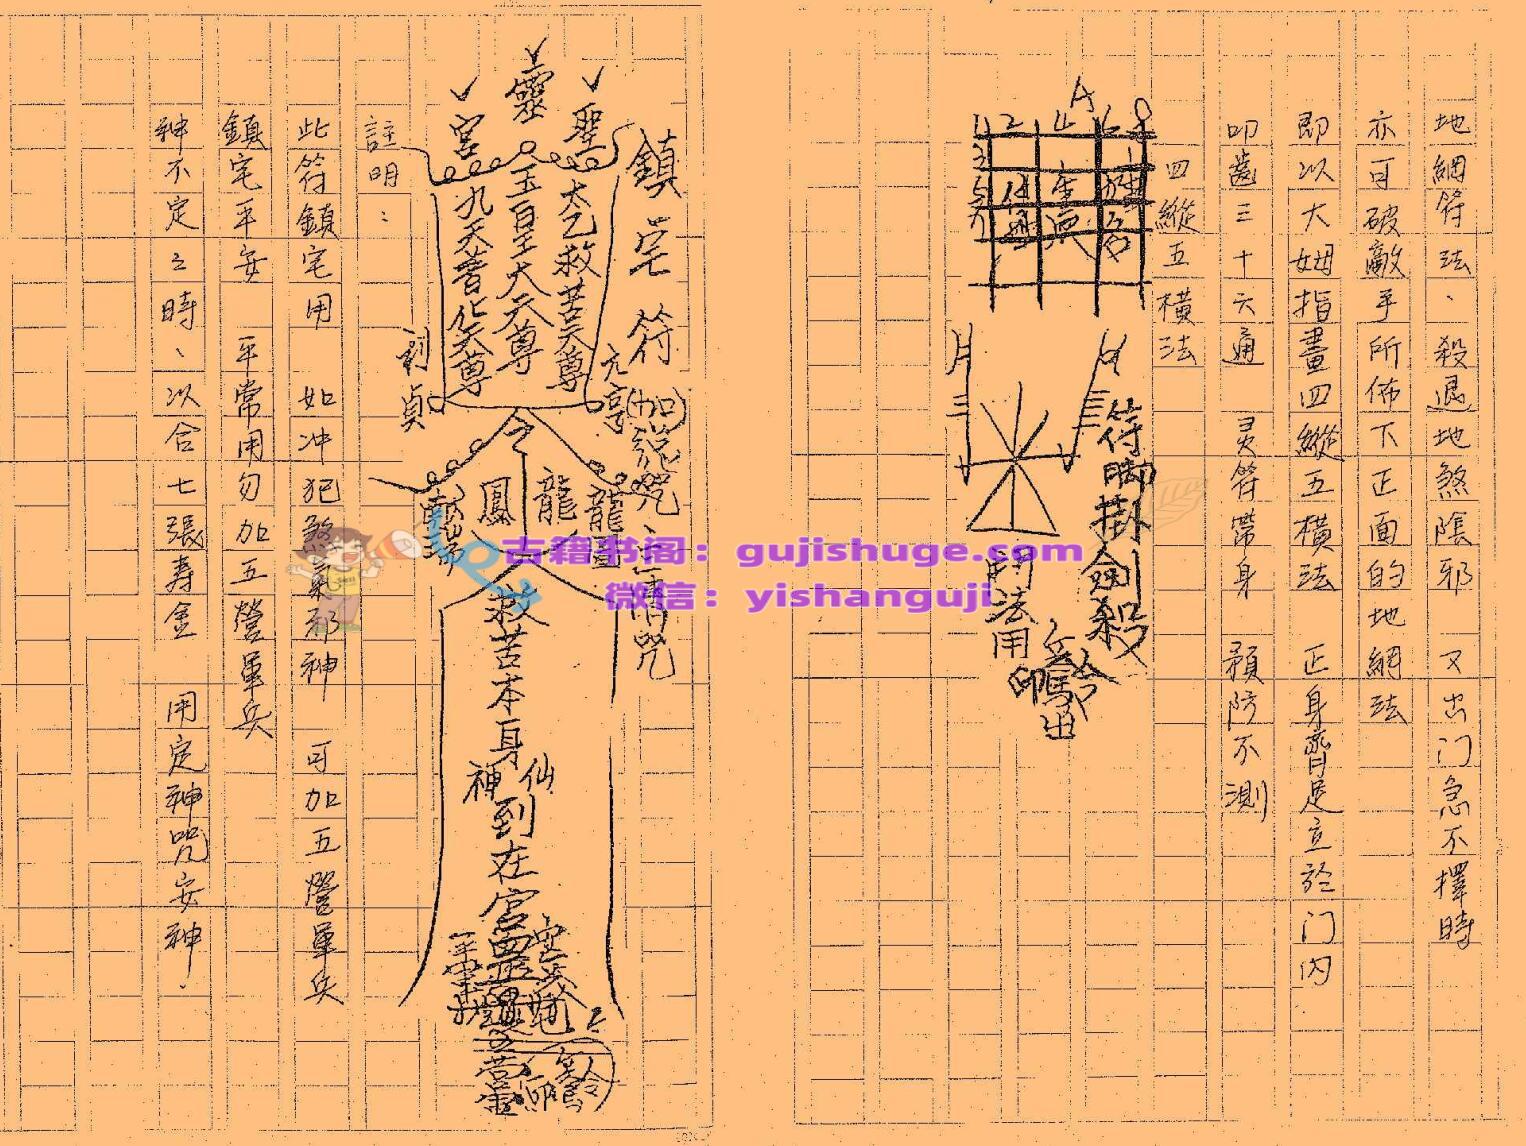 地網符法、殺退地煞陰邪 又出门急不擇時
亦可破敵手所佈下正面的地網法
即以大姆指畫四縱五橫法 正身齊足立於门内
叩齒三十六通 灵符帶身 預防不測
四縱五橫法
符脚掛劍殺
鬥法用
鎮宅符
聖
靈
宮
太乙救苦天尊
玉皇大天尊
九天普化天尊
元亨
利貞
令
龍
鳳
救苦本身
神仙
到在宮
註明：
此符鎮宅用 如冲犯煞氣邪神 可加五營軍兵
鎮宅平安 平常用勿加五營軍兵
神不定之時、以合七張壽金 用定神咒安神.
古籍书阁：gujishuge.com
微信：yishanguji